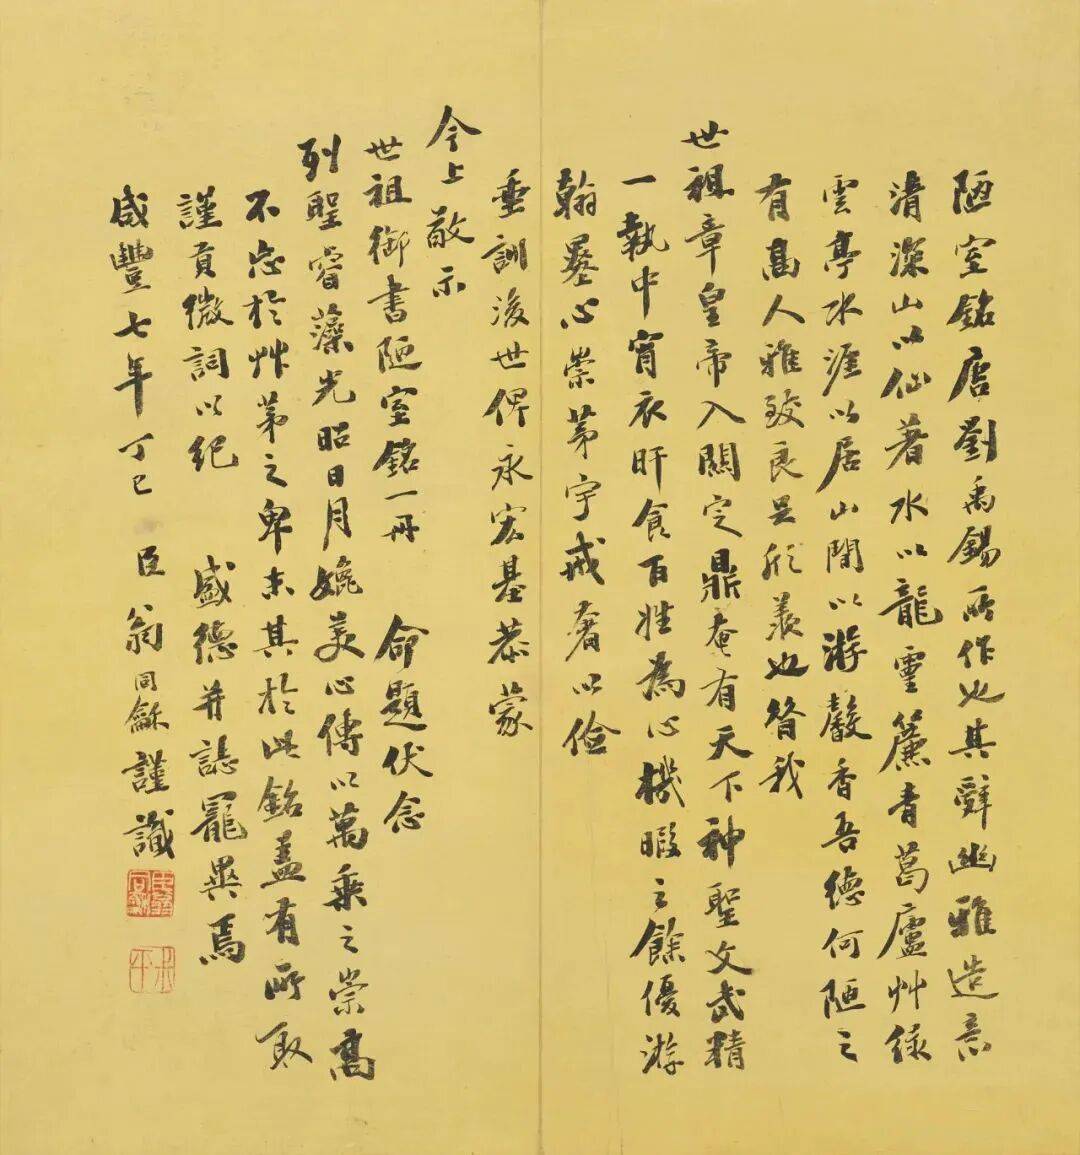 陋室銘唐劉禹錫所作也其辭幽雅造意
清深山以仙著水以龍靈簾青葛廬艸綠
雲亭水涯以居山閒以游馨香吾德何陋之
有高人雅致良足欣羨也昝我
世祖章皇帝入關定鼎奄有天下神聖文武精
一執中宵衣旰食百姓為心機暇之餘優游
翰墨心崇茅宇戒奢以儉
垂訓後世俾永宏基恭蒙
今上敬示
世祖御書陋室銘一冊 命題伏念
列聖睿藻光昭日月媲美心傳以萬乘之崇高
不忘於艸茅之卑末其於此銘蓋有所取
謹貢微詞以紀 盛德并誌寵異焉
咸豐七年丁巳 臣翁同龢謹識